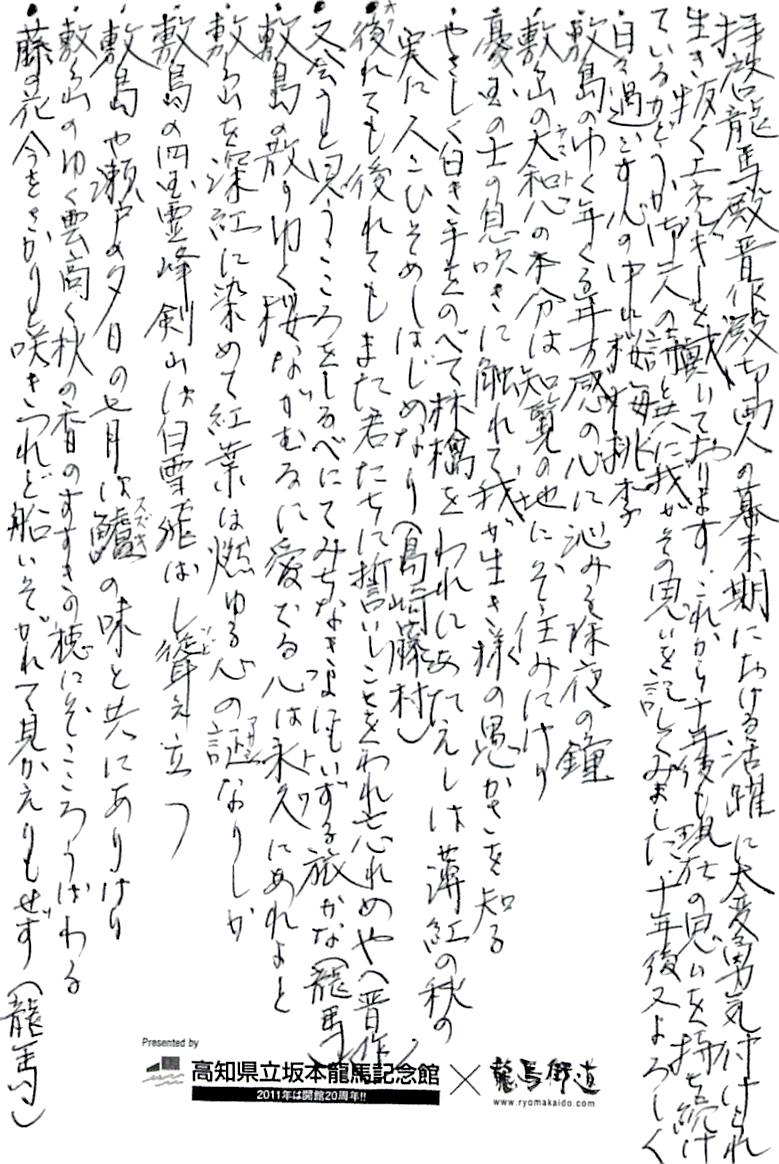 拝啓龍馬殿晋作殿御両人の幕末期における活躍に大変勇気付けられ
生き抜くエネルギーを戴いております。これから十年後も現在の思いを持ち続け
ているかどうか御二人の詩と共に我がその思いを記してみました。十年後又よろしく
・日々過ごす心の中に桜梅桃李
・敷島のゆく年くる年万感の心に沁みる除夜の鐘
・敷島の大和心の本分は知覧の地にぞ住みにけり
・憂国の士の息吹きに触れて我が生き様の愚かさを知る
・やさしく白き手をのべて林檎をわれにあたえしは薄紅の秋の
実に人こひそめしはじめなり(島崎藤村)
・後れても後れてもまた君たちに誓いしことをわれ忘れめや(晋作)
・又会うと思うこころをしるべにてみちなき よにもいずる旅かな(龍馬)
・敷島の散りゆく桜ながむるに愛でる心は永久にあれよと
・敷島を深紅に染めて紅葉は燃ゆる心の証なりしか
・敷島の四国霊峰剣山は白雪飛ばし聳え立つ
・敷島や瀬戸の夕日の七月は鱸の味と共にありけり
・敷島のゆく雲高く秋の香のすすきの穂にぞこころうばわる
・藤の花今をさかりと咲きつれど船いそがれて見かえりもせず(龍馬)
Presented by
高知県立坂本龍馬記念館
2011年は開館20周年!!
×
龍馬街道
www.ryomakaido.com